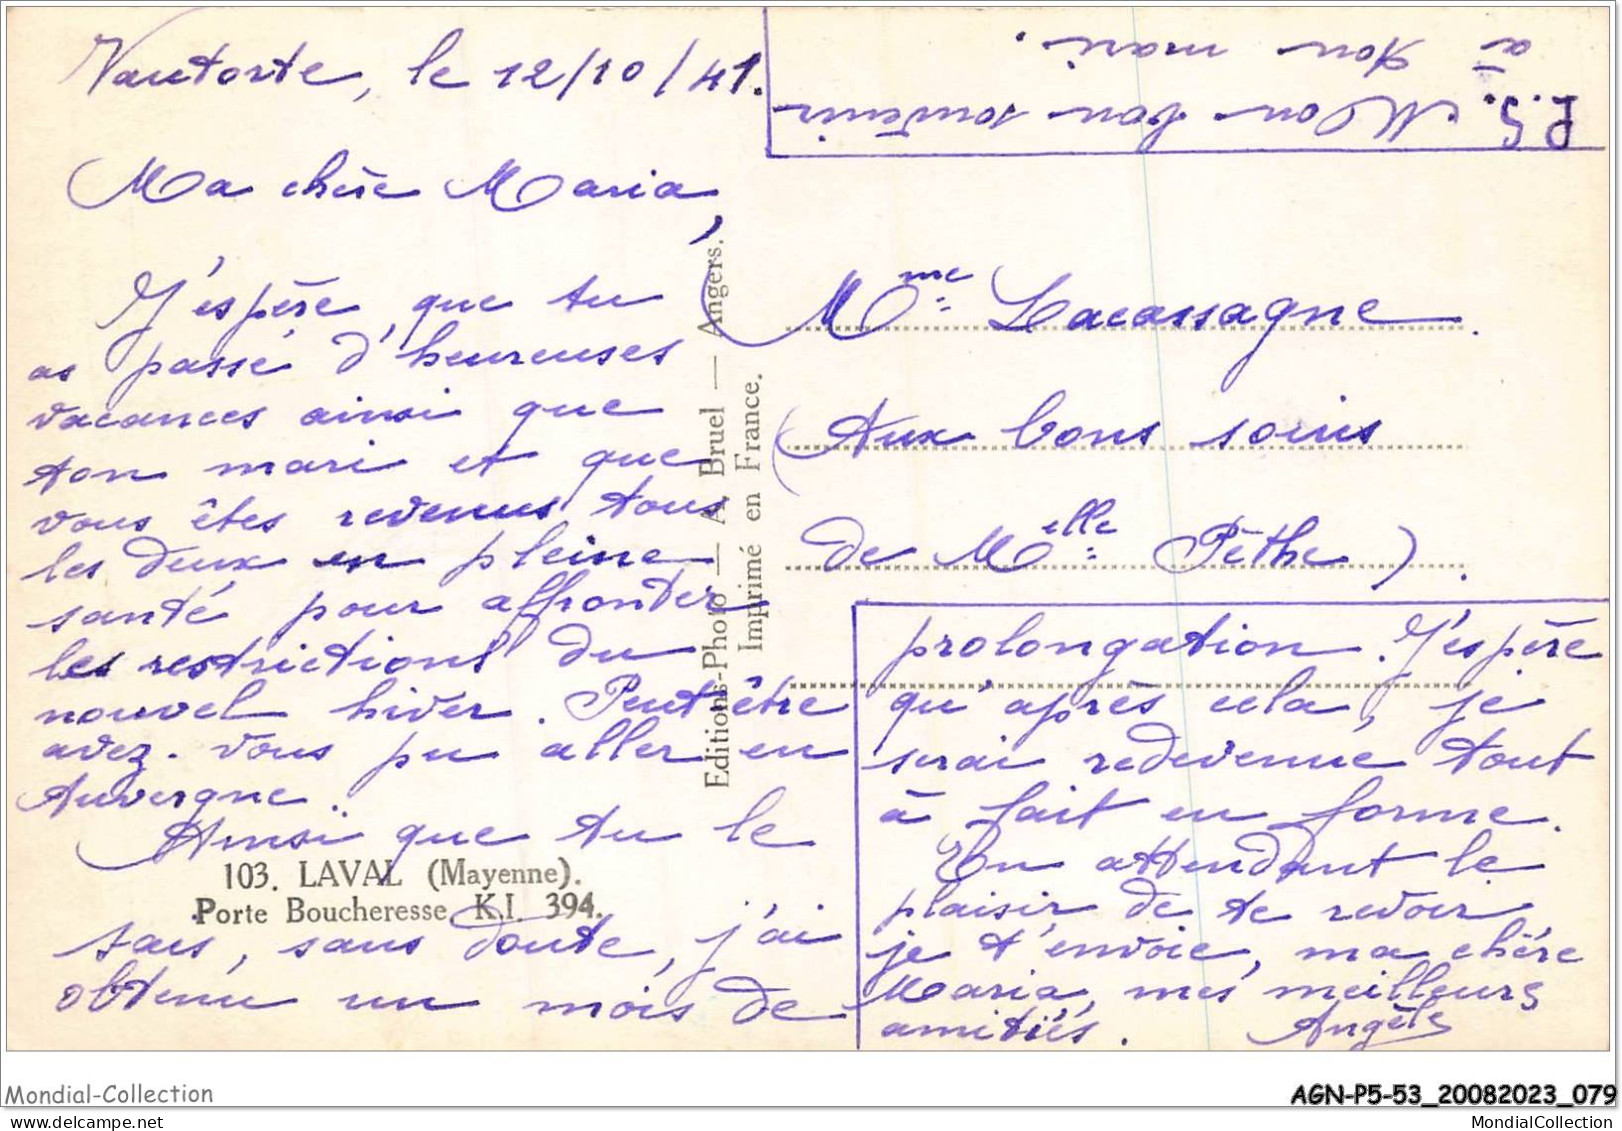 Vautorte, le 12/10/41.
Ma chère Maria,
J'espère que tu
as passé d'heureuses
vacances ainsi que
ton mari et que
vous êtes revenus tous
les deux en pleine
santé pour affronter
les restrictions du
nouvel hiver. Peut être
avez-vous pu aller en
Auvergne.
Ainsi que tu le
103. LAVAL (Mayenne).
Porte Boucheresse K.I. 394.
sais, sans doute, j'ai
obtenu un mois de
prolongation. J'espère
qu'après cela, je
serai redevenue tout
à fait en forme.
En attendant le
plaisir de te revoir
je t'envoie, ma chère
Maria, mes meilleures
amitiés. Angèle
P.S. Mon bon souvenir
à ton mari.
Mme Lacassagne
(Aux bons soins
de Melle Pèthe).
Editions-Photo — A. Bruel — Angers.
Imprimé en France.
Mondial-Collection
AGN-P5-53_20082023_079
MondialCollection